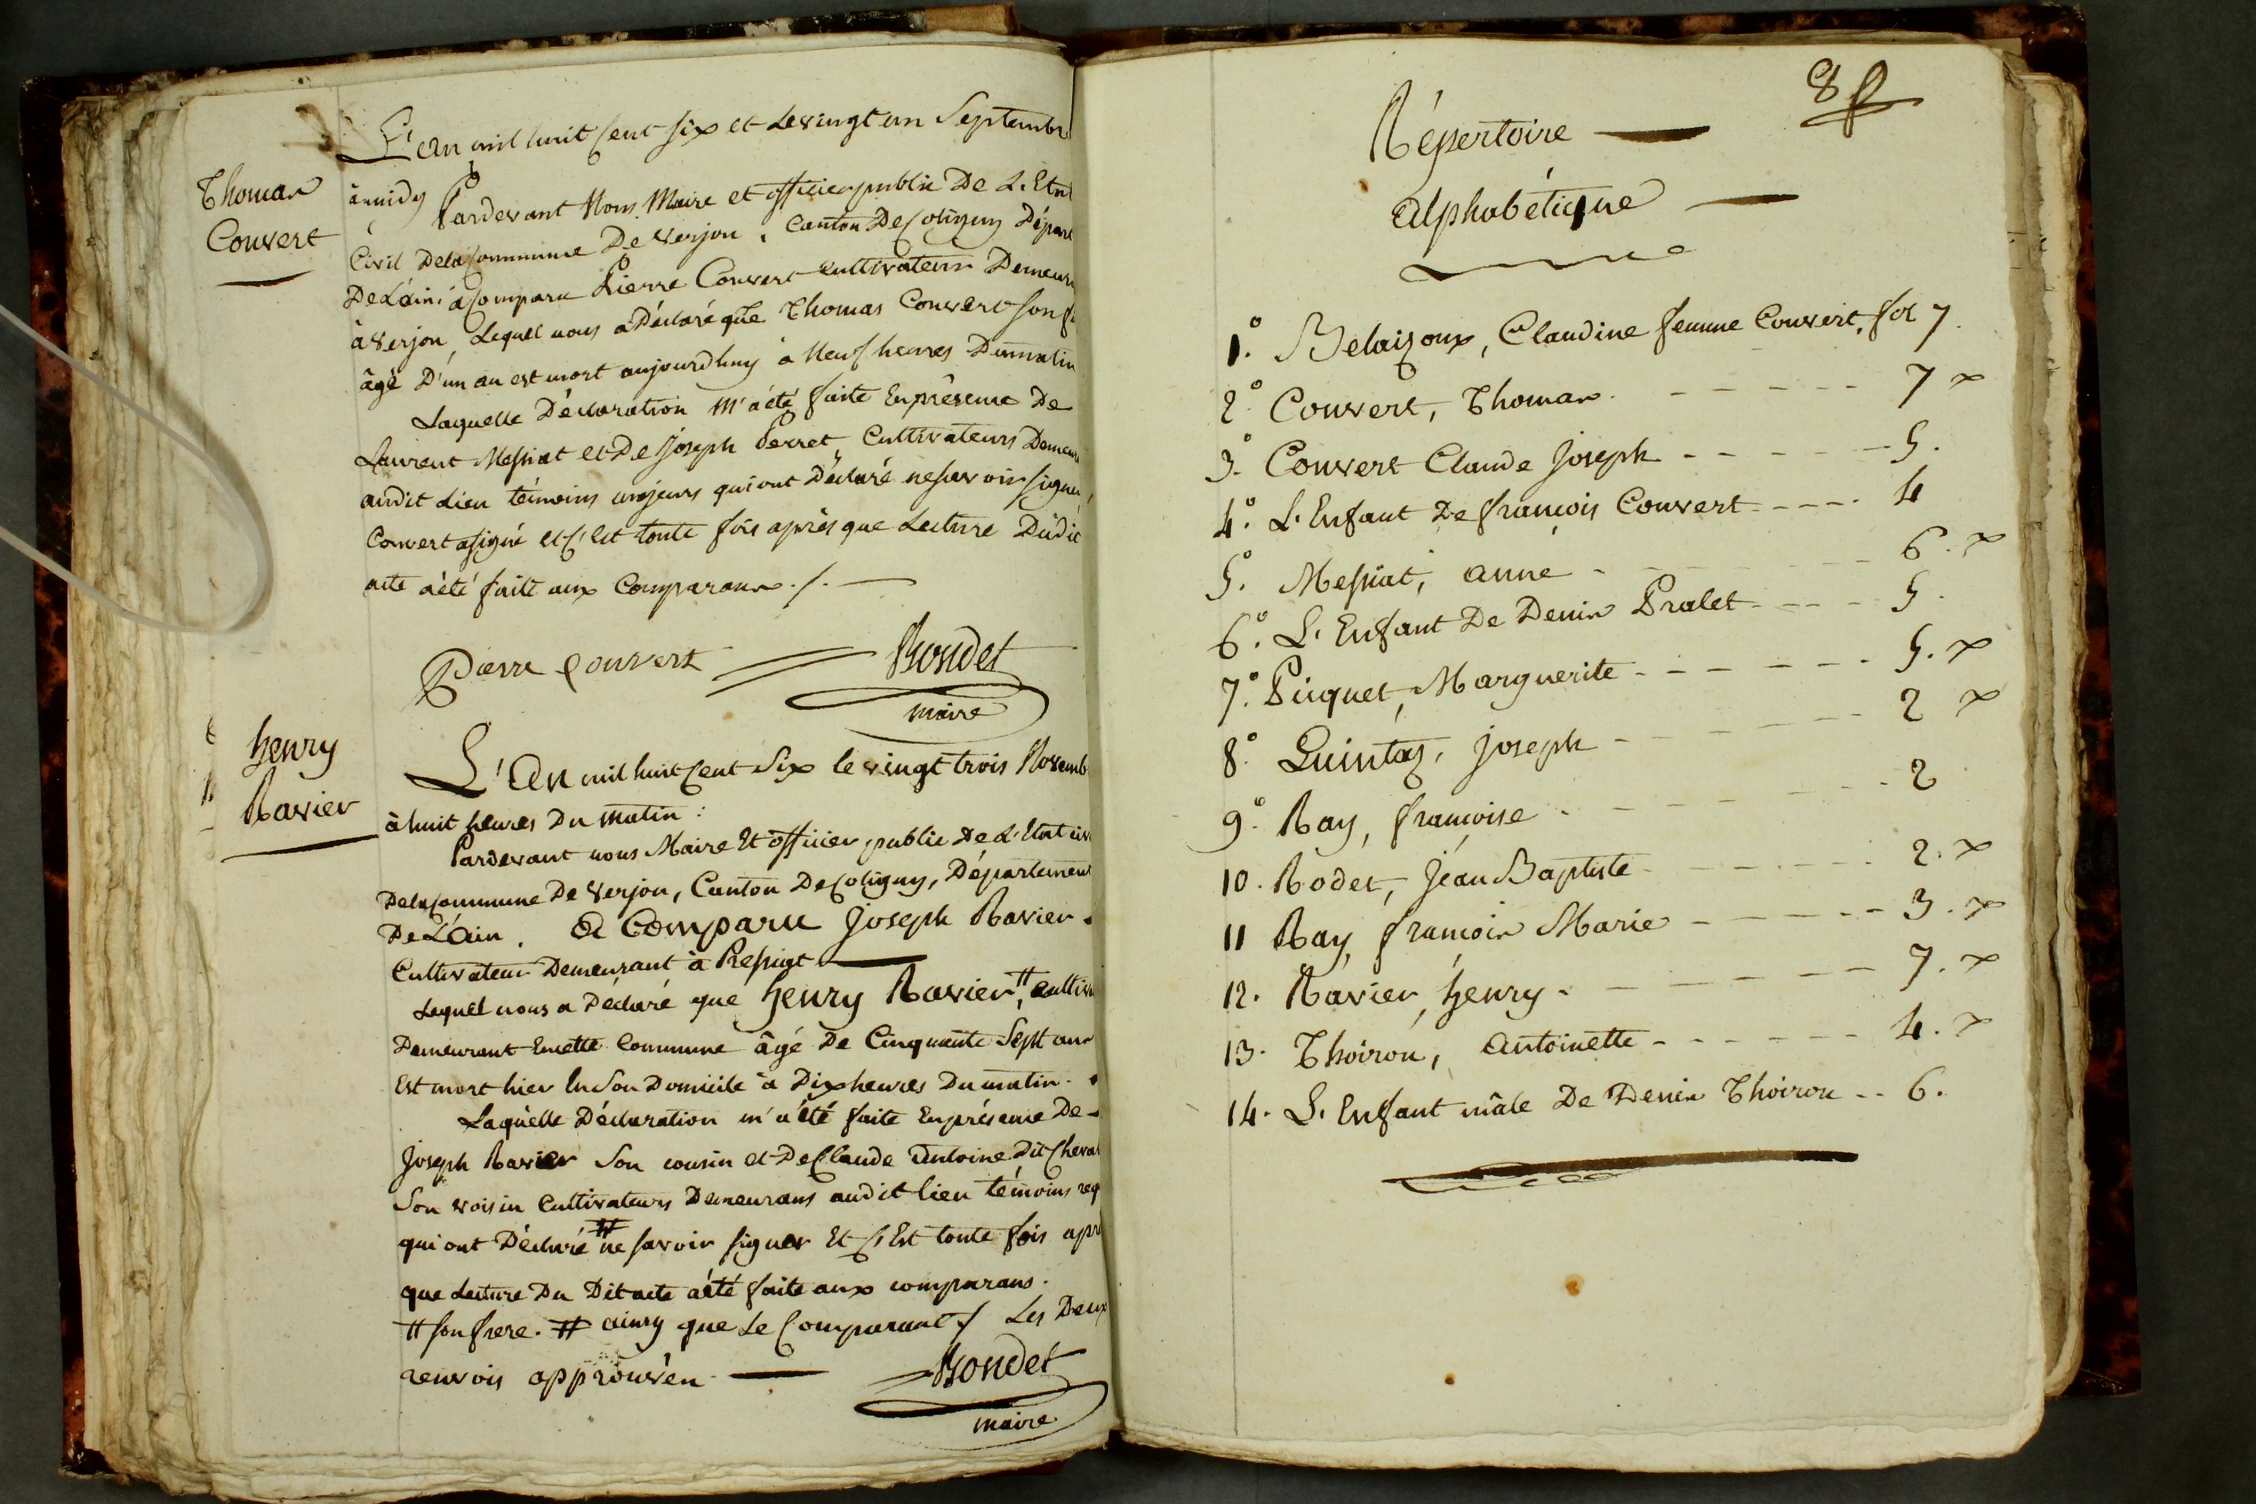 Thomas
Convert
L'an mil huit cent six et le vingt un Septembre
à midy Pardevant Nous Maire et officier public De L'Etat
Civil De la Commune De Verjon, Canton De Coligny Départ
De L'ain, a Comparu Pierre Convert Cultivateur Demeur
à Verjon, Lequel nous a Déclaré que Thomas Convert son f
âgé D'un an est mort aujourdhuy à Neuf heures Du matin
Laquelle Déclaration M'a été faite En présence De
Laurent Messiat et De Joseph Perret Cultivateurs Demeur
audit Lieu témoins majeurs qui ont Déclaré ne savoir signer,
Convert a signé et C'est toute fois après que Lecture Dudit
acte a été faite aux Comparans ./. —
Pierre Convert
Bondet
maire
henry
Ravier
L'An mil huit Cent Six le vingt trois Novemb
à huit heures Du matin :
Pardevant nous Maire Et officier public De L'Etat civ
De la Commune De Verjon, Canton De Coligny, Département
De L'Ain. A Comparu Joseph Ravier
Cultivateur Demeurant à Pressiat —
Lequel nous a Déclaré que henry Ravier # , cultiv
Demeurant En cette Commune âgé De Cinquante Sept ans
Est mort hier En Son Domicile à Dix heures Du matin.
Laquelle Déclaration m'a été faite En présence De -
Joseph Ravier Son cousin et De Claude Antoine Dit Cheval
Son voisin Cultivateurs Demeurans audit lieu témoins req
qui ont Déclaré # ne savoir signer Et C'Est toute fois apr
que Lecture Du Dit acte a été faite aux comparans.
# son frere. # ainsy que Le Comparant ./ Les Deux
renvois approuvén —
Bondet
maire
8
Répertoire —
Alphabétique —
1.° Belaisoux, Claudine femme Convert, fol 7.
2.° Convert, Thomas. - - - - - 7 x
3.° Convert Claude Joseph - - - - - - 5.
4.° L'Enfant De françois Convert - - - - 4
5.° Messiat, anne - - - - 6. x
6.° L'Enfant De Denis Pralet - - - - 5
7.° Picquet, Marguerite - - - - - - 5. x
8.° Quintaz, Joseph - - - - - - 2 x
9.° Ray, françoise - - - - - - 2
10. Rodet, Jean Baptiste - - - - - 2. x
11 Ray, françois Marie - - - - - 3. x
12. Ravier, henry - - - - - - 7. x
13. Thoiron, Antoinette - - - - - - 4. x
14. L'Enfant mâle De Denis Thoiron - - 6.